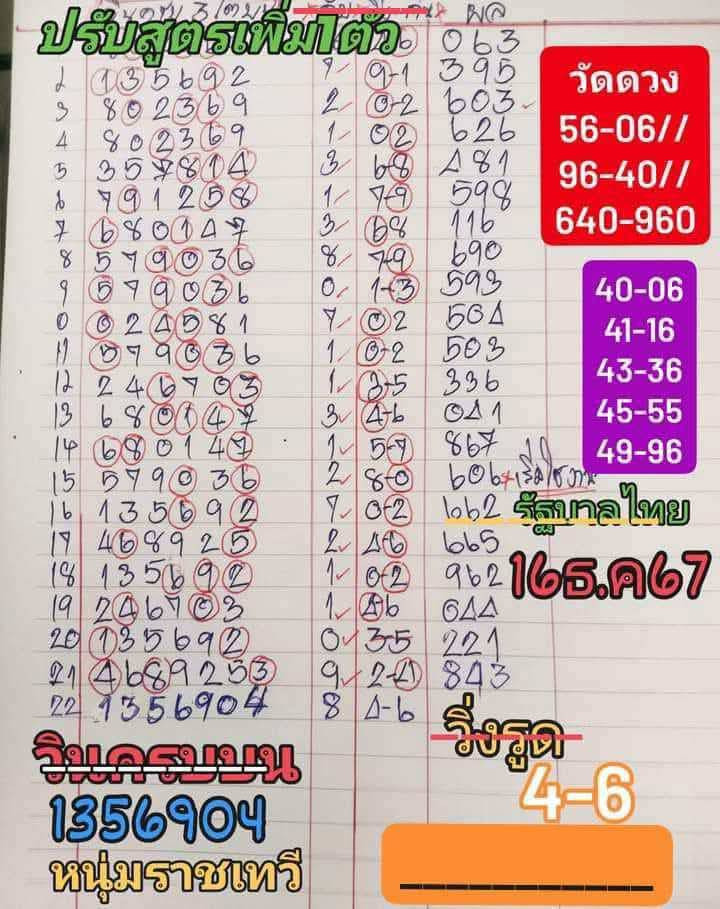 ปรับสูตรเพิ่ม1ตัว
063
2 135692 9 9-1 395
3 802369 2 0-2 603
4 802369 1 02 626
5 357814 3 68 481
6 791258 1 7-9 598
7 680147 3 68 116
8 579036 8 7-9 690
9 579036 0 1-3 593
0 024581 7 02 504
11 579036 1 0-2 503
12 246703 1 3-5 336
13 680147 3 4-6 041
14 680147 1 5-7 867
15 579036 2 8-0 606
16 135692 7 0-2 662
17 468925 2 46 665
18 135692 1 0-2 962
19 246703 1 46 044
20 135692 0 35 221
21 4689253 9 2-4 843
22 1356904 8 4-6
วัดดวง
56-06//
96-40//
640-960
40-06
41-16
43-36
45-55
49-96
รัฐบาลไทย
16ธ.ค67
วินครบบน
1356904
หนุ่มราชเทวี
วิ่งรูด
4-6